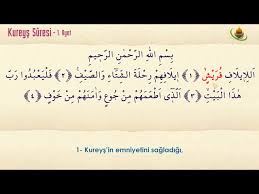 Kureyş Sûresi - 1. Ayet
بِسْمِ اللّٰهِ الرَّحْمٰنِ الرَّحٖيمِ
لِاٖيلَافِ قُرَيْشٍۙ ﴿١﴾ اٖيلَافِهِمْ رِحْلَةَ الشِّتَٓاءِ وَالصَّيْفِۚ ﴿٢﴾ فَلْيَعْبُدُوا رَبَّ
هٰذَا الْبَيْتِۙ ﴿٣﴾ اَلَّـذٖٓي اَطْعَمَهُمْ مِنْ جُوعٍ وَاٰمَنَهُمْ مِنْ خَوْفٍ ﴿٤﴾
1- Kureyş'in emniyetini sağladığı,